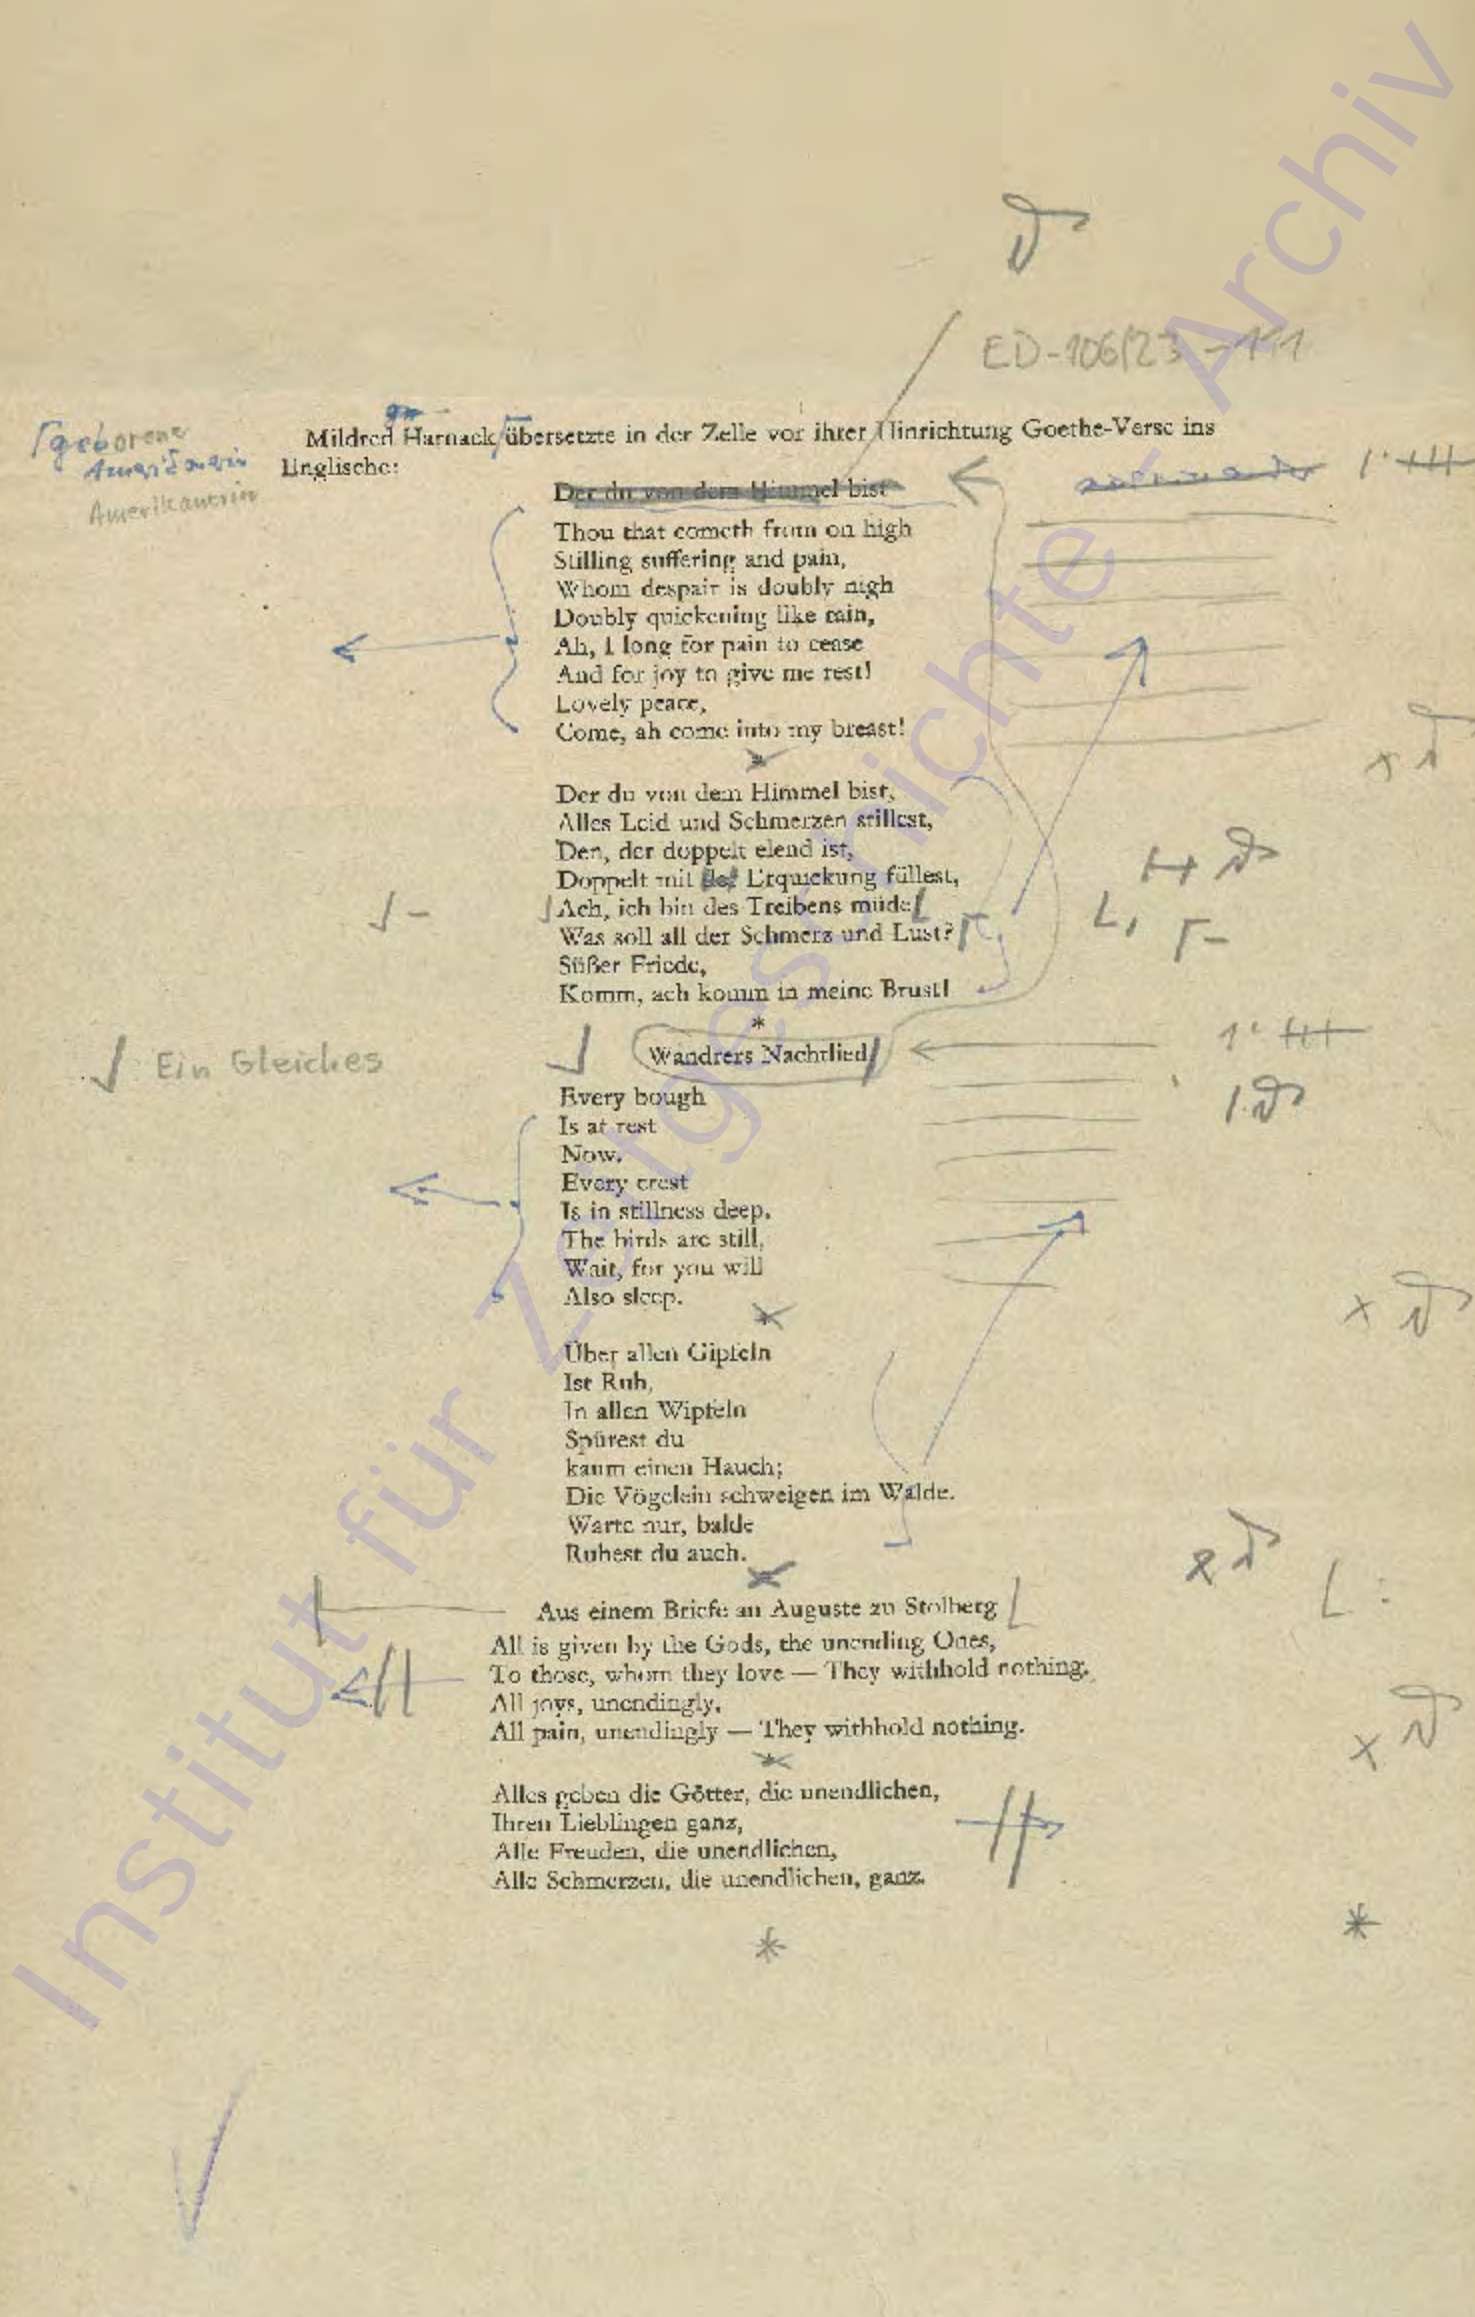 ED-106/23 - 111
geborene
Amerikanerin
Amerikanerin
Mildred Harnack übersetzte in der Zelle vor ihrer Hinrichtung Goethe-Verse ins
Englische:
Der du von dem Himmel bist
Thou that cometh from on high
Stilling suffering and pain,
Whom despair is doubly nigh
Doubly quickening like rain,
Ah, I long for pain to cease
And for joy to give me rest!
Lovely peace,
Come, ah come into my breast!
*
Der du von dem Himmel bist,
Alles Leid und Schmerzen stillest,
Den, der doppelt elend ist,
Doppelt mit Erquickung füllest,
Ach, ich bin des Treibens müde
Was soll all der Schmerz und Lust?
Süßer Friede,
Komm, ach komm in meine Brust!
*
Ein Gleiches
Wandrers Nachtlied
Every bough
Is at rest
Now.
Every crest
Is in stillness deep.
The birds are still,
Wait, for you will
Also sleep.
*
Über allen Gipfeln
Ist Ruh,
In allen Wipfeln
Spürest du
kaum einen Hauch;
Die Vögelein schweigen im Walde.
Warte nur, balde
Ruhest du auch.
*
Aus einem Briefe an Auguste zu Stolberg
All is given by the Gods, the unending Ones,
To those, whom they love — They withhold nothing.
All joys, unendingly,
All pain, unendingly — They withhold nothing.
*
Alles geben die Götter, die unendlichen,
Ihren Lieblingen ganz,
Alle Freuden, die unendlichen,
Alle Schmerzen, die unendlichen, ganz.
*
*
Institut für Zeitgeschichte - Archiv